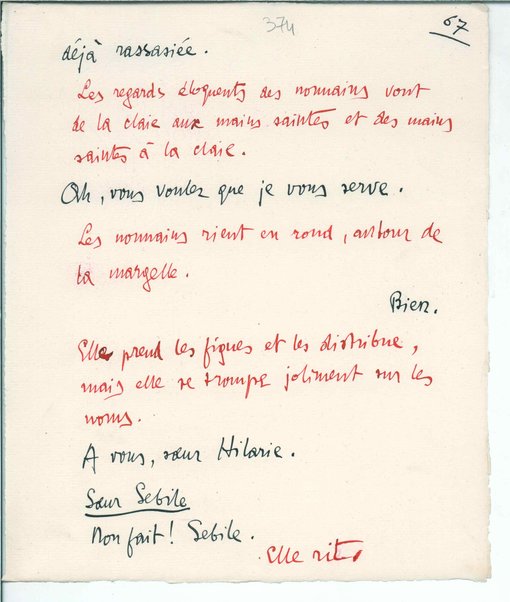 374
67
déjà rassasiée.
Les regards éloquents des nonnains vont
de la claie aux mains saintes et des mains
saintes à la claie.
Oh, vous voulez que je vous serve.
Les nonnains rient en rond, autour de
la margelle.
Bien.
Elle prend les figues et les distribue,
mais elle se trompe joliment sur les
noms.
A vous, sœur Hilarie.
Sœur Sebile
Non fait! Sebile.
Elle rit.